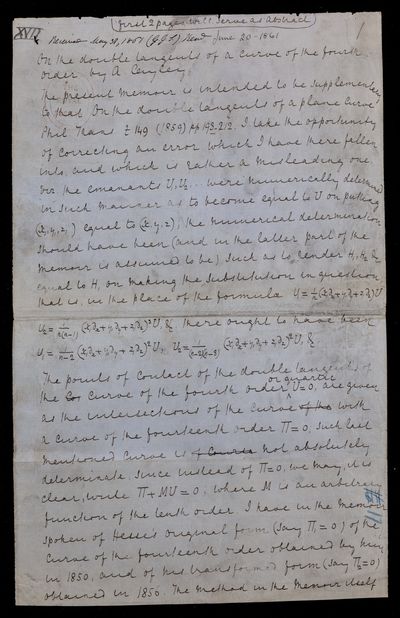 first 2 pages will serve as Abstract
XVII
Received May 30, 1861 Read June 20-1861
On the double tangents of a curve of the fourth
order by A Cayley.
The present Memoir is intended to be supplementary
to that On the double tangents of a plane curve
Phil Trans t 149 (1859) pp 193-212. I take the opportunity
of correcting an error which I have there fallen
into, and which is rather a misleading one,
viz the emanants U₁, U₂ .. were numerically determined
in such manner as to become equal to U on putting
(x₁, y₁, z₁) equal to (x, y, z), the numerical determination
should have been (and in the latter part of the
memoir is assumed to be) such as to render H₁, H₂ &c
equal to H, on making the substitution in question,
that is, in the place of the formulæ
there ought to have been
The points of contact of the double tangents of
the curve of the fourth order or quartic U=0, are given
as the intersections of the curve of the with
a curve of the fourteenth order Π=0, such last
mentioned curve is of Course not absolutely
determinate, since instead of Π=0, we may, it is
clear, write Π+MU=0, where M is an arbitrary
function of the tenth order. I have in the Memoir
spoken of Hesse's original form (say Π₁=0) of the
curve of the fourteenth order obtained by him
in 1850, and of his transformed form (say Π₂=0)
obtained in 1856. The method in the Memoir itself